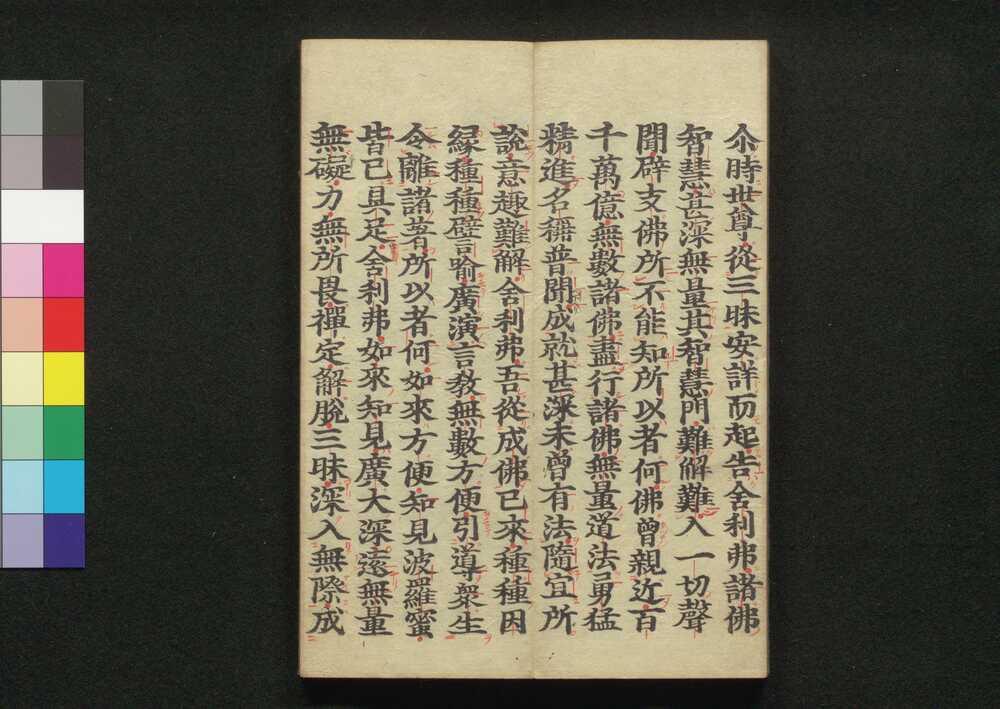 尒時世尊從三昧安詳而起告舍利弗諸佛
智慧甚深無量其智慧門難解難入一切聲
聞辟支佛所不能知所以者何佛曾親近百
千萬億無數諸佛盡行諸佛無量道法勇猛
精進名稱普聞成就甚深未曾有法隨宜所
說意趣難解舍利弗吾從成佛已來種種因
緣種種譬喻廣演言教無數方便引導衆生
令離諸著所以者何如來方便知見波羅蜜
皆已具足舍利弗如來知見廣大深遠無量
無礙力無所畏禪定解脫三昧深入無際成